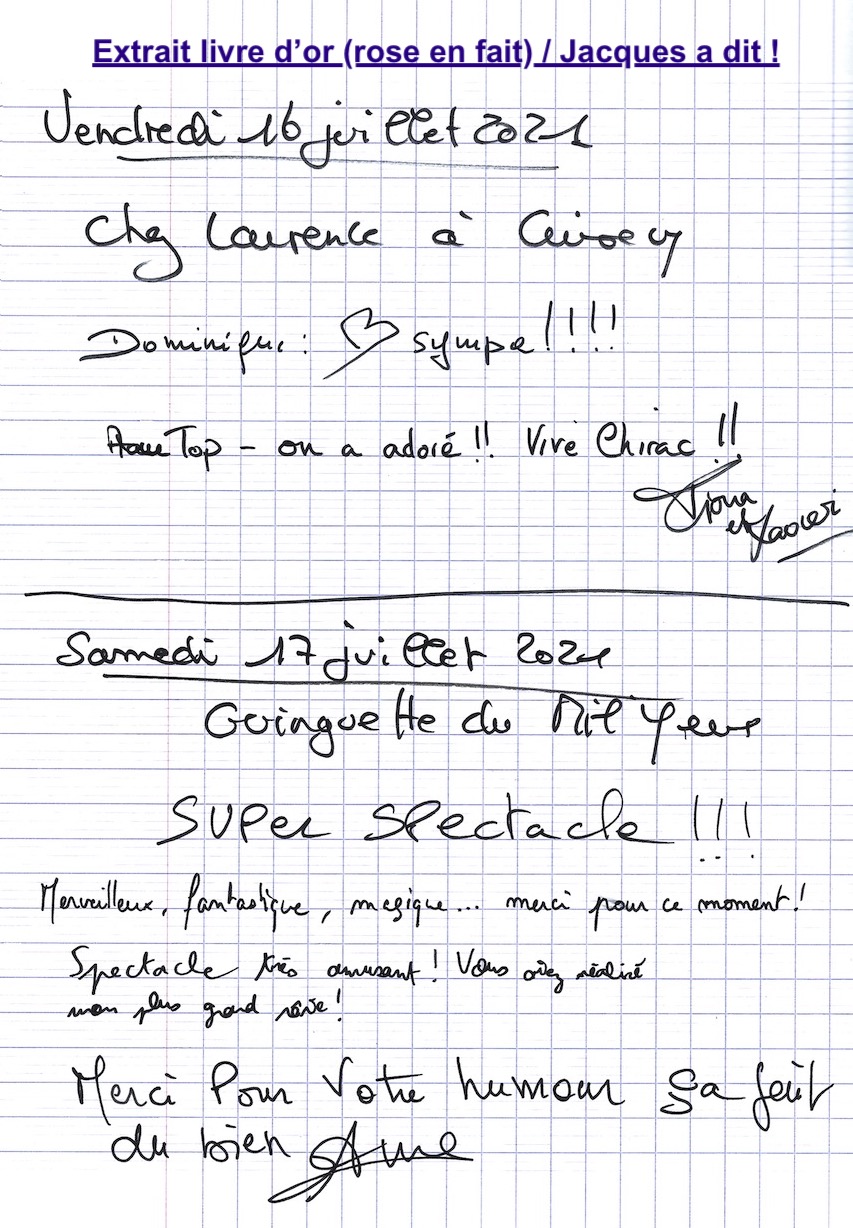 Extrait livre d’or (rose en fait) / Jacques a dit !
Vendredi 16 juillet 2021
Chez Laurence à
Dominique : sympa !!!!
Top - on a adoré !! Vive Chirac !!
et
Samedi 17 juillet 2021
Guinguette du Mil'Yeux
SUPER SPectacle !!!
Merveilleux, fantastique, magique... merci pour ce moment !
Spectacle très amusant ! Vous avez réalisé
mon plus grand rêve !
Merci Pour Votre humour ça fait
du bien